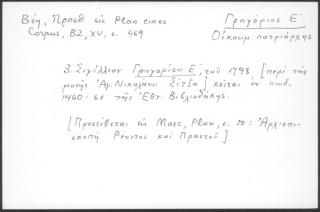 Βέη, Προσθ. εἰς Plan eines
Corpus, BZ, XV, σ. 469
Γρηγόριος Ε΄
Οἰκουμ. πατριάρχης
3. Σιγίλλιον Γρηγορίου Ε΄, τοῦ 1798, [περὶ τῆς
μονῆς Ἁγ. Νικολάου Σίτζα] κεῖται ἐν κωδ.
1460-61 τῆς Ἐθν. Βιβλιοθήκης.
[Προστίθεται εἰς Marc, Plan, σ. 50: Ἀρχιεπι-
σκοπὴ Ρέοντος καὶ Πραστοῦ]